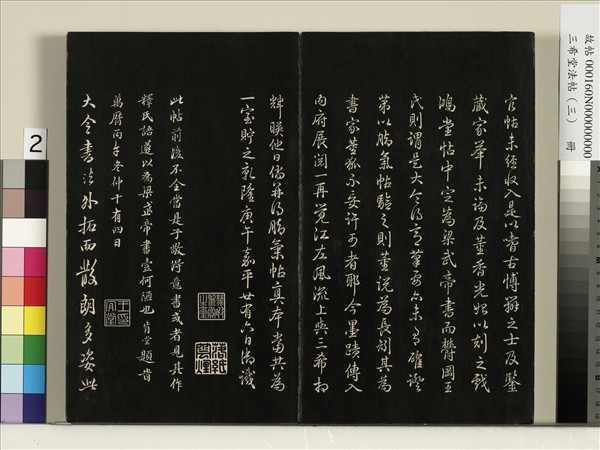 故帖 000160N000000000
三希堂法帖 (三) 冊
官帖未經收入是以嗜古博雅之士及鑒
藏家畢未論及董香光始以刻之戲
鴻堂帖中定為梁武帝書而鬱岡王
氏則謂是大令得意筆要亦未有確證
第以腦氣帖驗之則董說為長刻其為
書家妄許可者耶今墨蹟傳入
內府展閱一再覺江左風流上與三希相
輝暎他日儻并得腦氣帖真本當共為
一室貯之乾隆庚午嘉平廿有六日御識
落紙雲煙
此帖前後不全當是子敬得意書或者見是作
釋氏語遂以為梁武帝書壹何陋也肯堂題旹
萬曆丙午冬仲十有四日
大令書法外拓而散朗多姿此
2